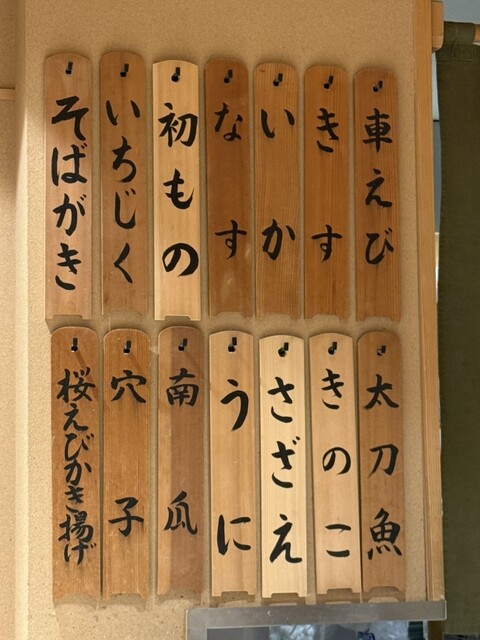 車えび
きす
いか
なす
初もの
いちじく
そばがき
太刀魚
きのこ
さざえ
うに
南瓜
穴子
桜えびかき揚げ